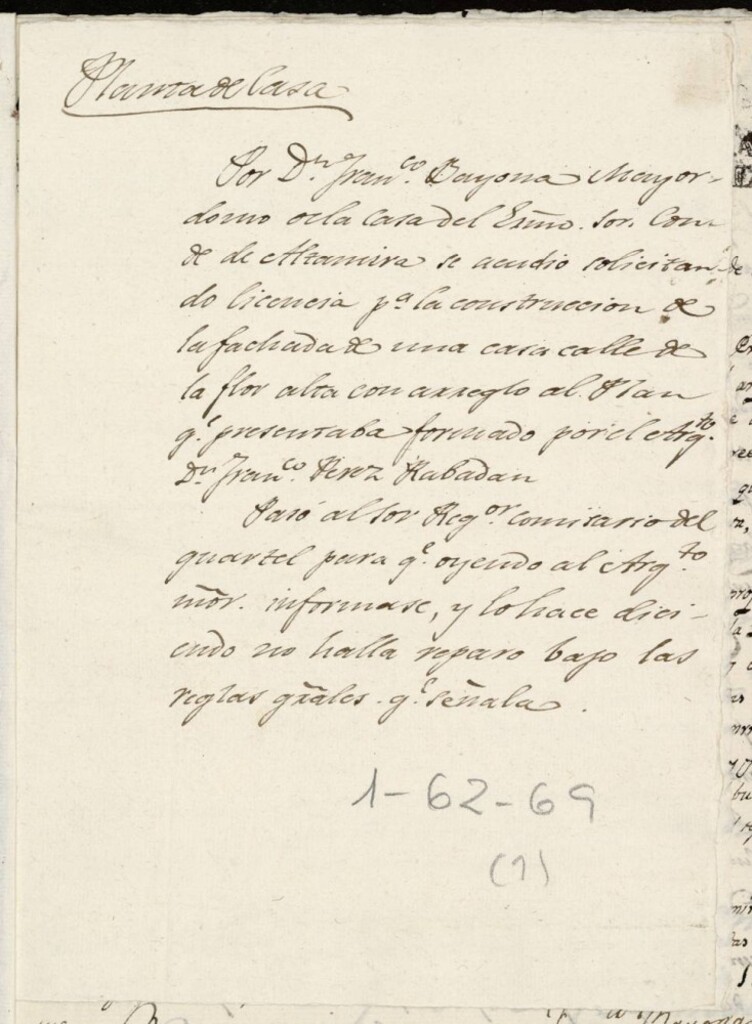 Planta de Casa
Por Dn. Franco. Bayona Mayor-
domo de la casa del Exmo. Sor. Con-
de de Altamira se acudio solicitan-
do licencia pa. la construccion de
la fachada de una casa calle de
la flor alta con arreglo al Plan
qe. presentaba formado por el Arqto.
Dn. Franco. Perez Rabadan
Pasó al Sor Regor. comisario del
quartel para qe. oyendo al Arqto.
mór. informase, y lo hace dici-
endo no halla reparo bajo las
reglas grãles. qe. señala.
1-62-69
(1)